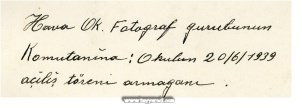 Hava Ok. Fotograf gurubunun
Komutanına : Okulun 20/6/1939
açılış töreni armaganı .